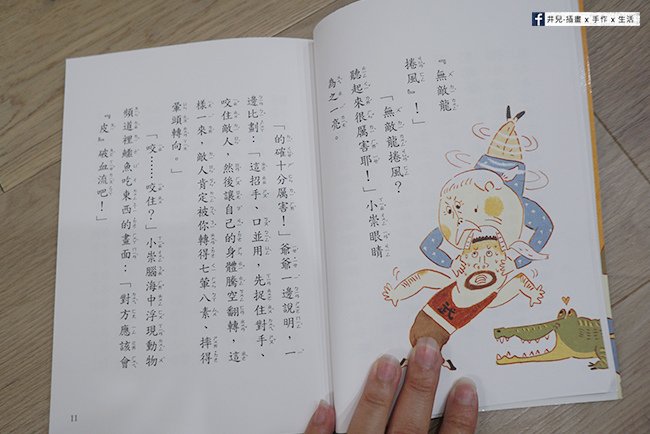 井兒-插畫 x 手作 x 生活
『無敵龍
捲風』！」
「無敵龍捲風？
聽起來很厲害耶！」小崇眼睛
為之一亮。
武
「的確十分厲害！」爺爺一邊說明，一
邊比劃：「這招手、口並用，先捉住對手、
咬住敵人，然後讓自己的身體騰空翻轉，這
樣一來，敵人肯定被你轉得七葷八素、摔得
暈頭轉向。」
「咬……咬住？」小崇腦海中浮現動物
頻道裡鱷魚吃東西的畫面：「對方應該會
『皮』破血流吧！」
11